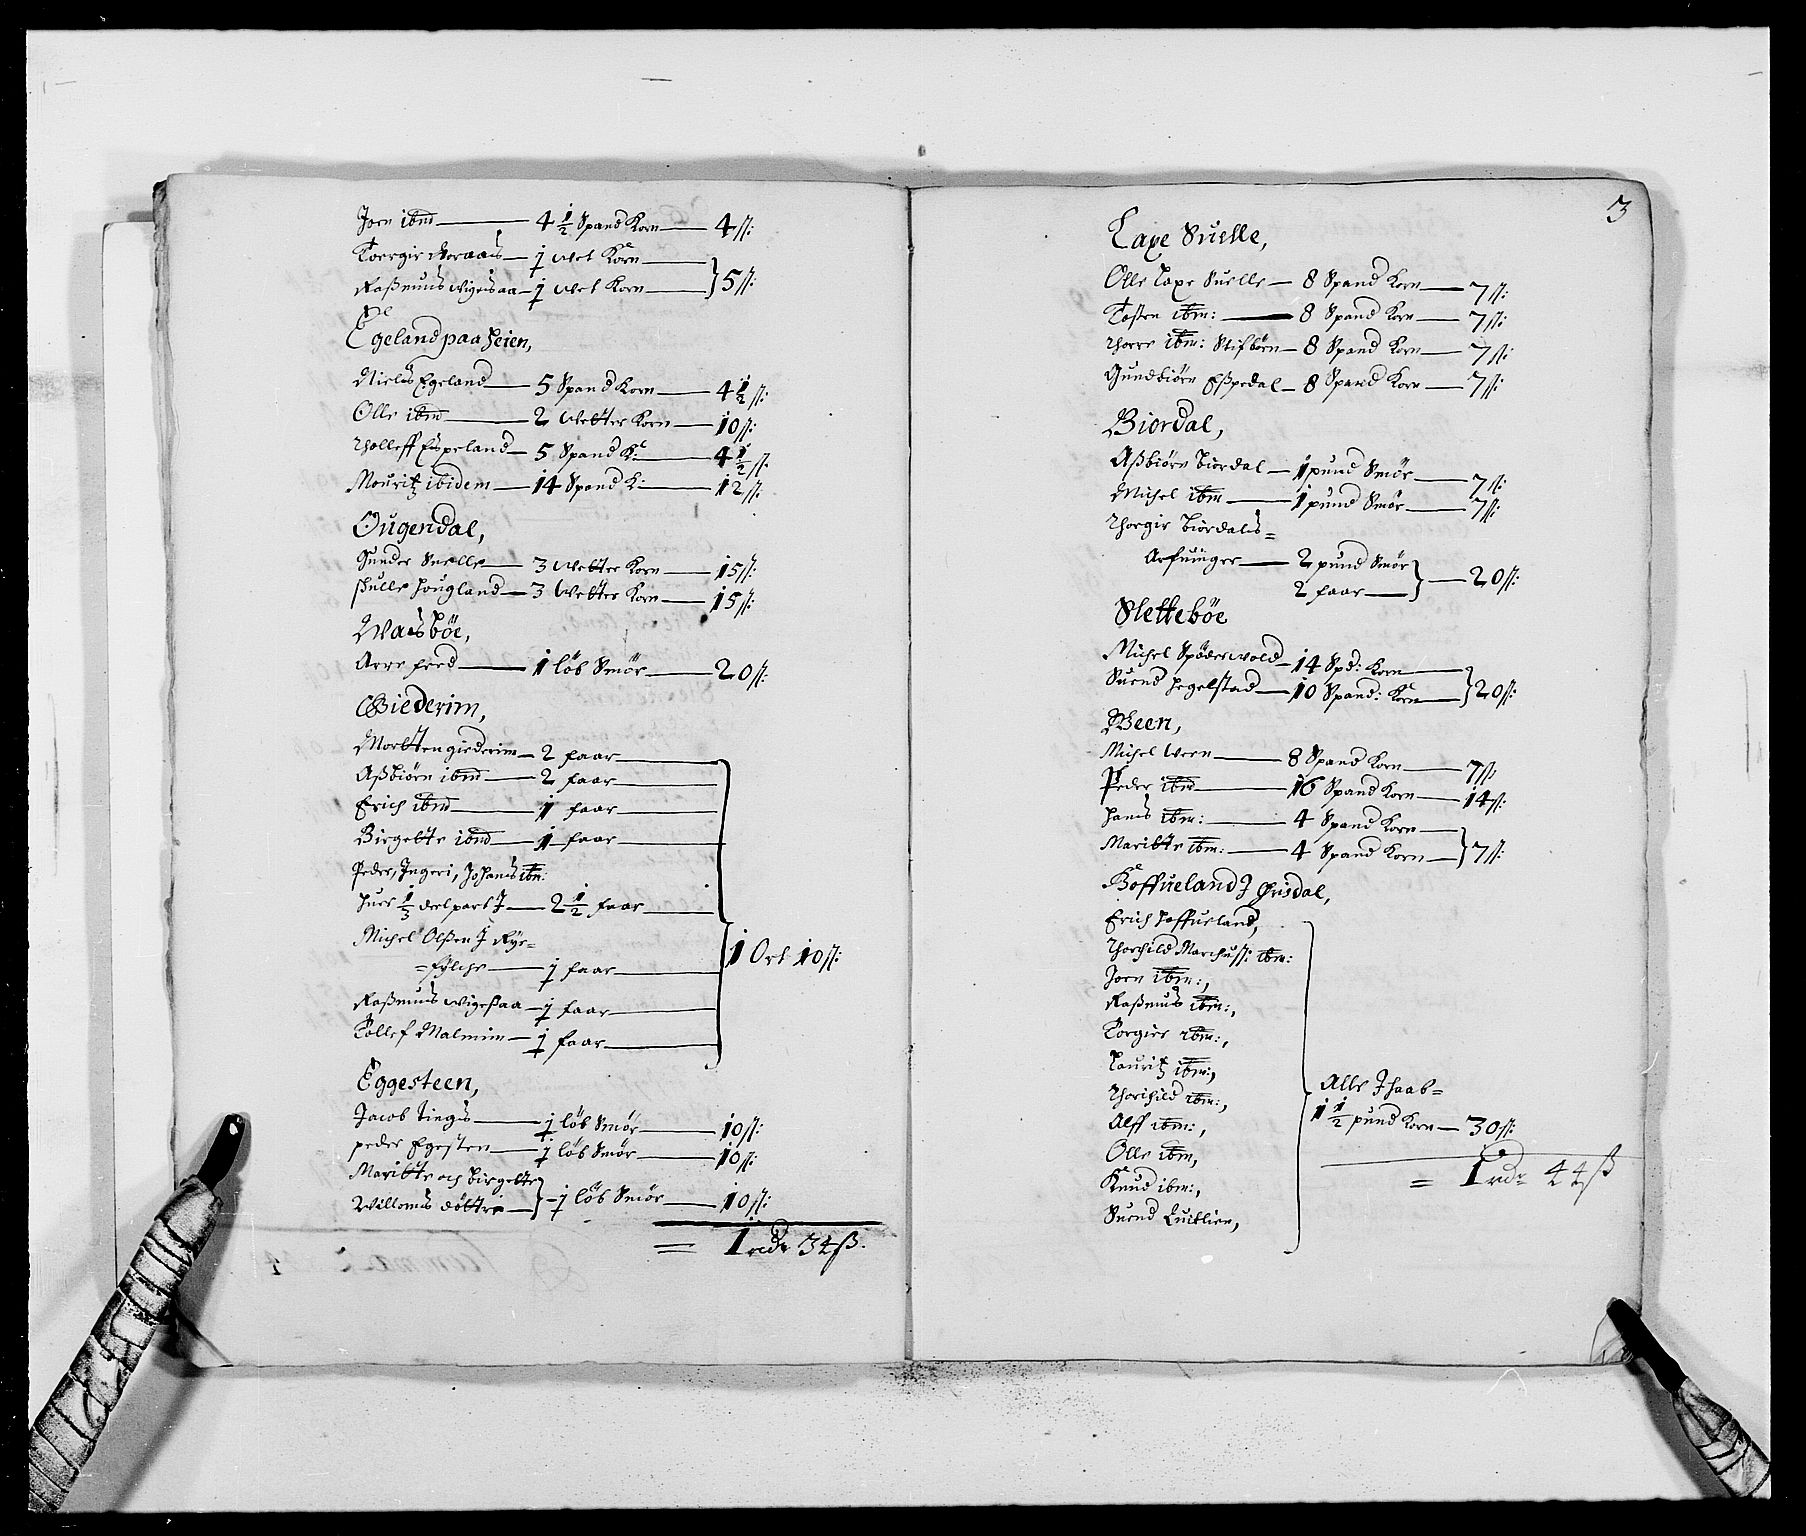 Joen ibm — 4 1/2 Spand Korn — 4 ß:
Toergir Moraas — 1 wet Korn —
Raßmus wigesaa — 1 wet Korn — } 5 ß:
Egeland paa Heien,
Niels Egeland — 5 Spand Korn — 4 1/2 ß:
Olle ibm — 2 wetter Korn — 10 ß:
Tholleff Espeland — 5 Spand K: — 4 1/2 ß:
Mouritz ibidem — 14 Spand K: — 12 ß:
Ougendal,
Gunder Suelle — 3 wetter Korn — 15 ß:
Hougland — 3 wetter Korn — 15 ß:
Waasbøe,
Aere — 1 löb Smör — 20 ß:
Giederim,
Mortten giederim — 2 faar —
Aßbiörn ibm — 2 faar —
Erich ibm — 1 faar —
Birgette ibm — 1 faar —
Peder, Ingeri, Johans ibm:
huer 1/3 deelpart J — 2 1/2 faar —
Michel Olßen J Rye=
=fylche — 1 faar —
Raßmus wigeßaa — 1 faar —
Tollef Malmim — 1 faar —
} 1 Ort 10 ß:
Eggesteen,
Jacob tings — 1 löb Smör — 10 ß:
peder Egesten — 1 löb Smör — 10 ß:
Maritte och birgette
Willoms döttre — } — 1 löb Smör — 10 ß:
= 1 rdr 34 ß.
3
Laxe Suelle,
Olle Laxe Suelle — 8 Spand Korn — 7 ß:
Tosten ibm: — 8 Spand Korn — 7 ß:
Thore ibm: Stifbörn — 8 Spand Korn — 7 ß:
Gundbiörn Eßpedal — 8 Spand Korn — 7 ß:
Biordal,
Aßbiörn biordal — 1 pund Smör — 7 ß:
Michel ibm — 1 pund Smör — 7 ß:
Thorgir biordals=
Arfuinger — 2 pund Smör
2 faar — } — 20 ß:
Slettebøe
Michel Spöderwold — 14 Spd: Korn —
Suend Hegelstad — 10 Spand: Korn — } 20 ß:
Ween,
Michel Ween — 8 Spand Korn — 7 ß:
Peder ibm — 16 Spand Korn — 14 ß:
Hans ibm: — 4 Spand Korn —
Maritte ibm: — 4 Spand Korn — } 7 ß:
Hoffueland J Ørsdal,
Erich Hoffueland,
Thorchild Marchuss: ibm:
Joen ibm:,
Raßmus ibm:,
Torgier ibm:,
Lauritz ibm:,
Thorchild ibm:,
Alff ibm:,
Olle ibm,
Knud ibm:,
Suend Luitlien,
Alle J haab=
1 1/2 pund Korn — 30 ß:
= 1 rdr 44 ß